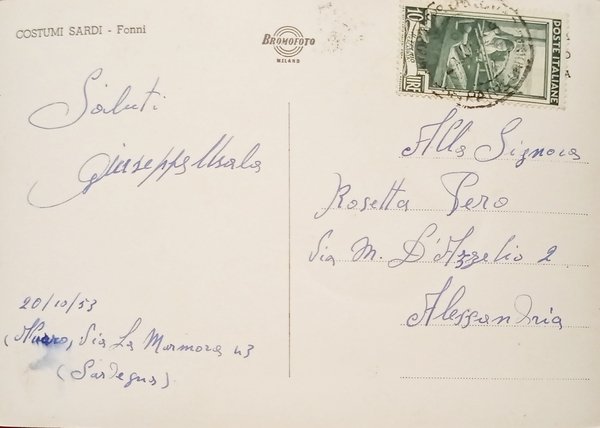 COSTUMI SARDI - Fonni
BROMOFOTO
MILANO
LIRE 10
POSTE ITALIANE
Saluti
Giuseppa Usala
20/10/53
(Nuoro, Via La Marmora 43
(Sardegna)
Alla Signora
Rosetta Pero
Via M. D'Azeglio 2
Alessandria